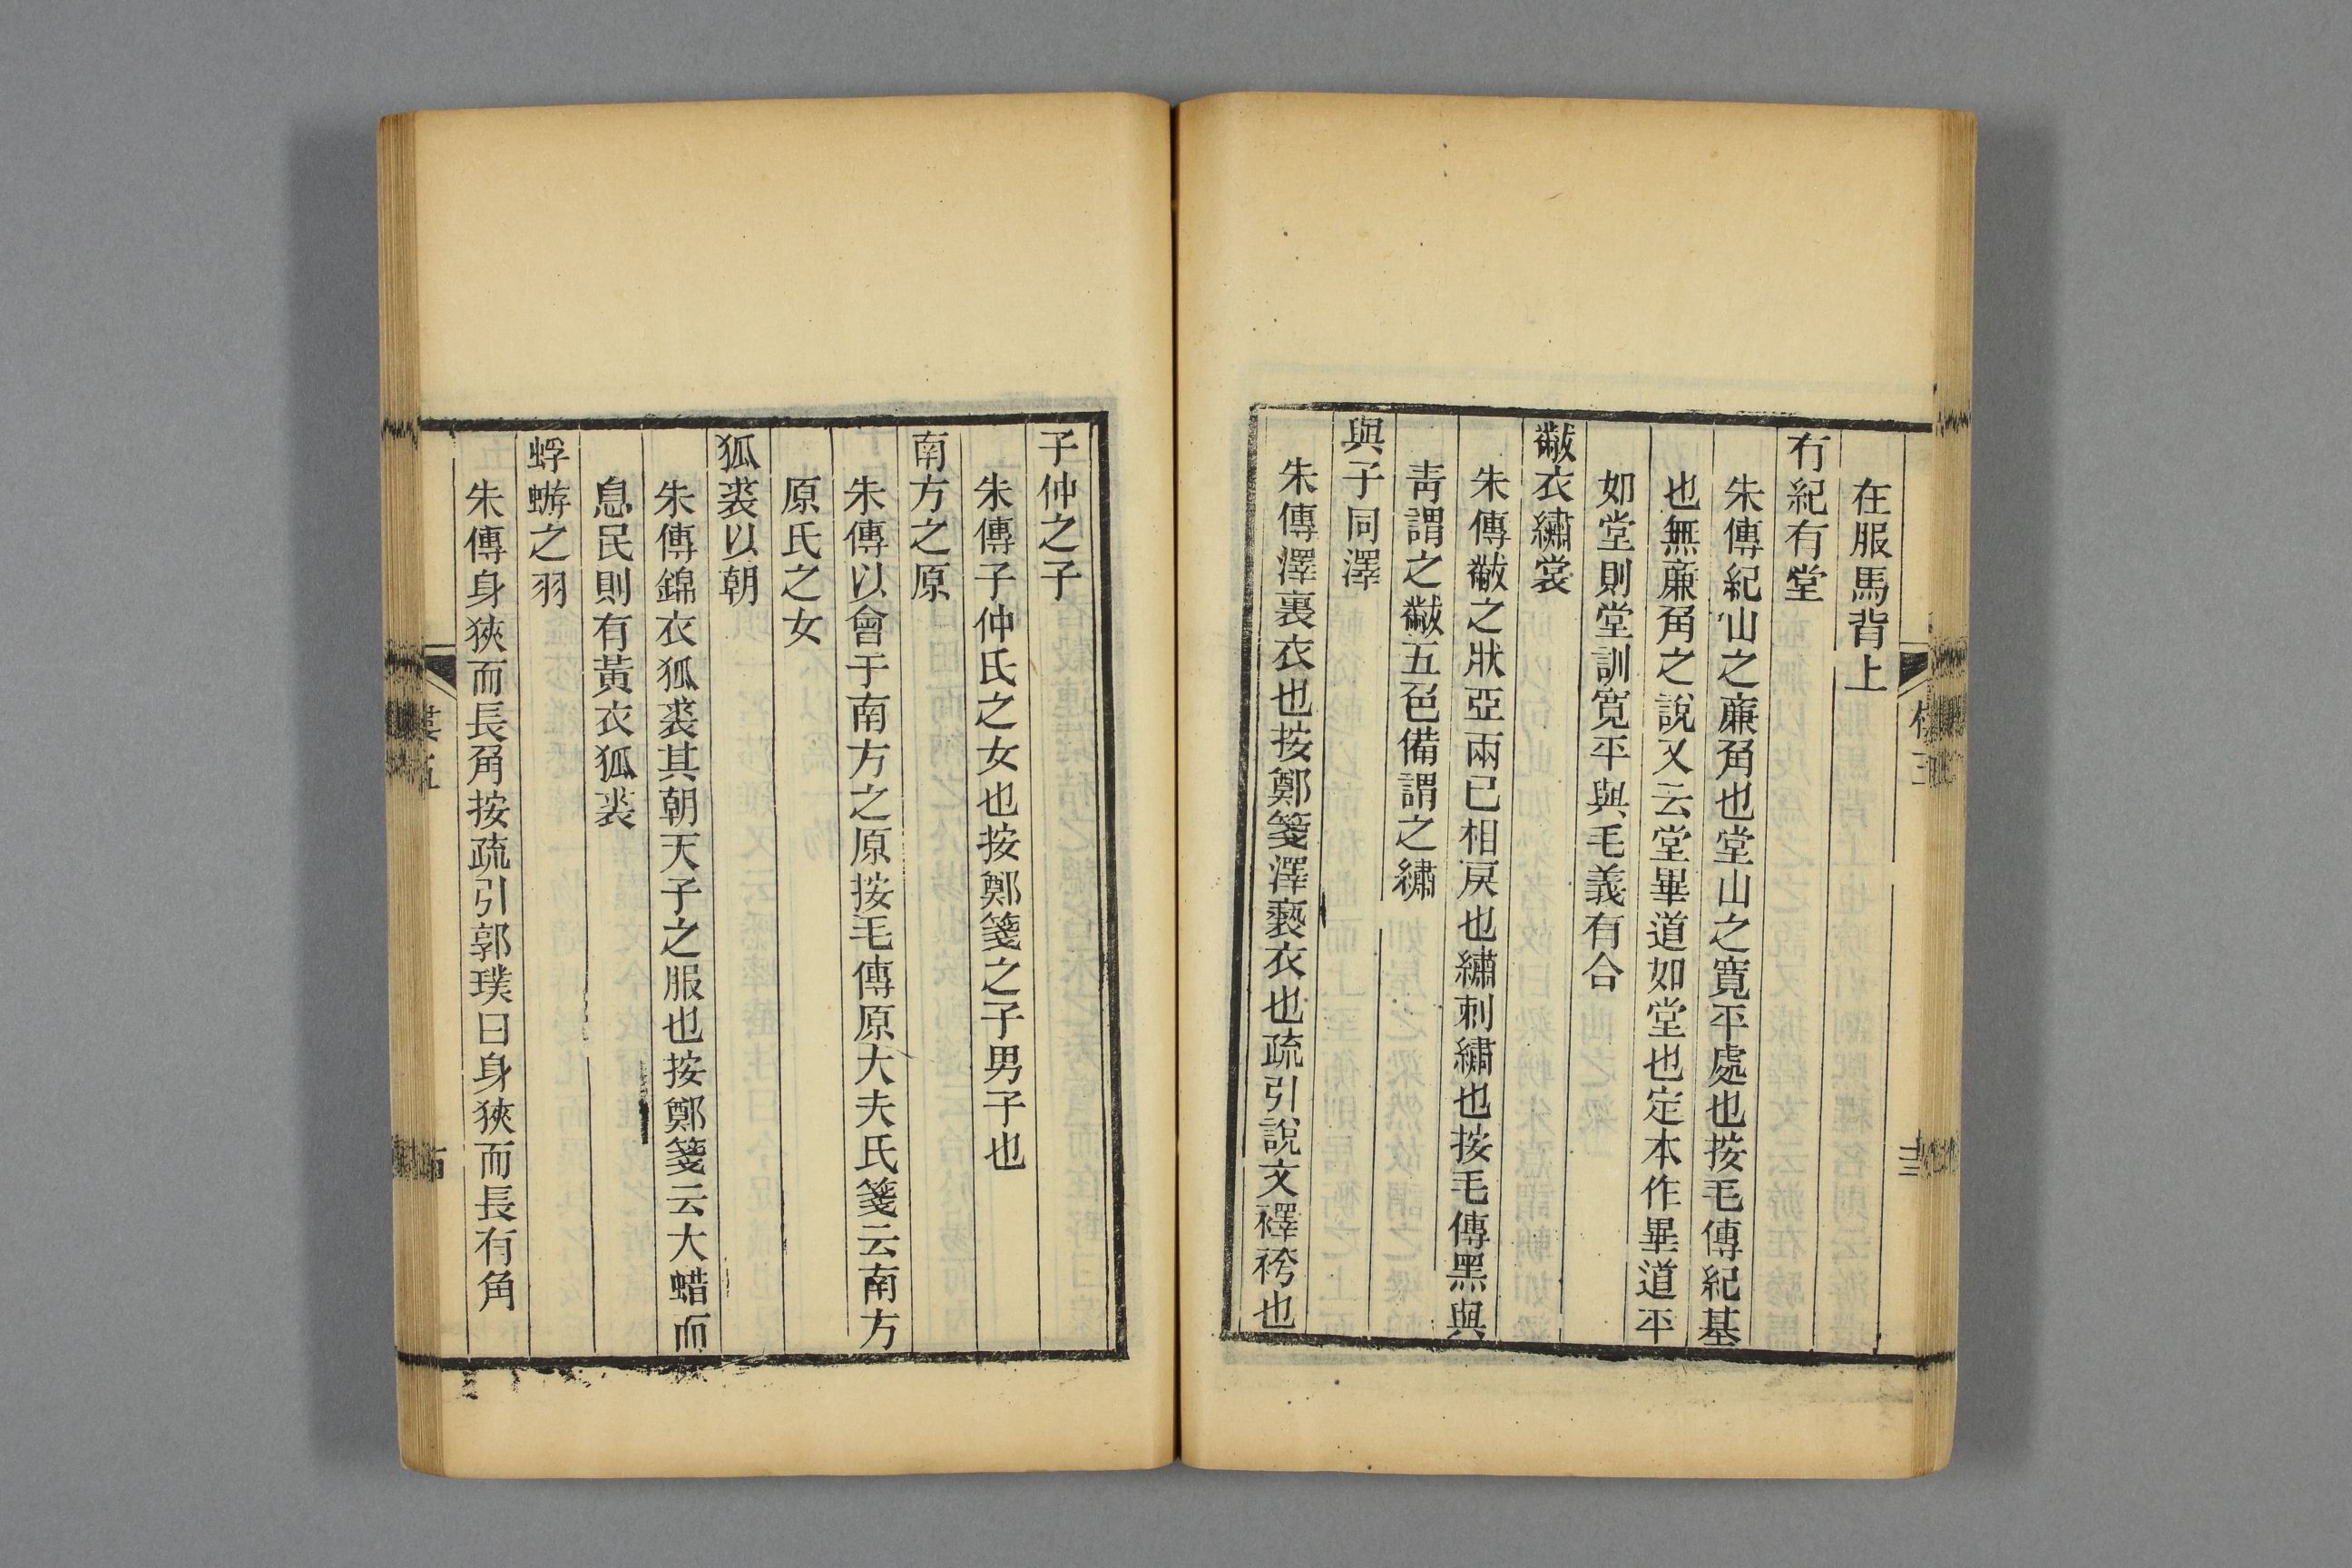 在服馬背上
有紀有堂
朱傳紀山之廉角也堂山之寬平處也按毛傳紀基
也無廉角之說又云堂畢道如堂也定本作畢道平
如堂則堂訓寬平與毛義有合
黻衣繡裳
朱傳黻之狀亞兩己相戾也繡刺繡也按毛傳黑與
靑謂之黻五色備謂之繡
與子同澤
朱傳澤裏衣也按鄭箋澤褻衣也疏引說文襗袴也
子仲之子
朱傳子仲氏之女也按鄭箋之子男子也
南方之原
朱傳以會于南方之原按毛傳原大夫氏箋云南方
原氏之女
狐裘以朝
朱傳錦衣狐裘其朝天子之服也按鄭箋云大蜡而
息民則有黃衣狐裘
蜉蝣之羽
朱傳身狹而長角按疏引郭璞曰身狹而長有角